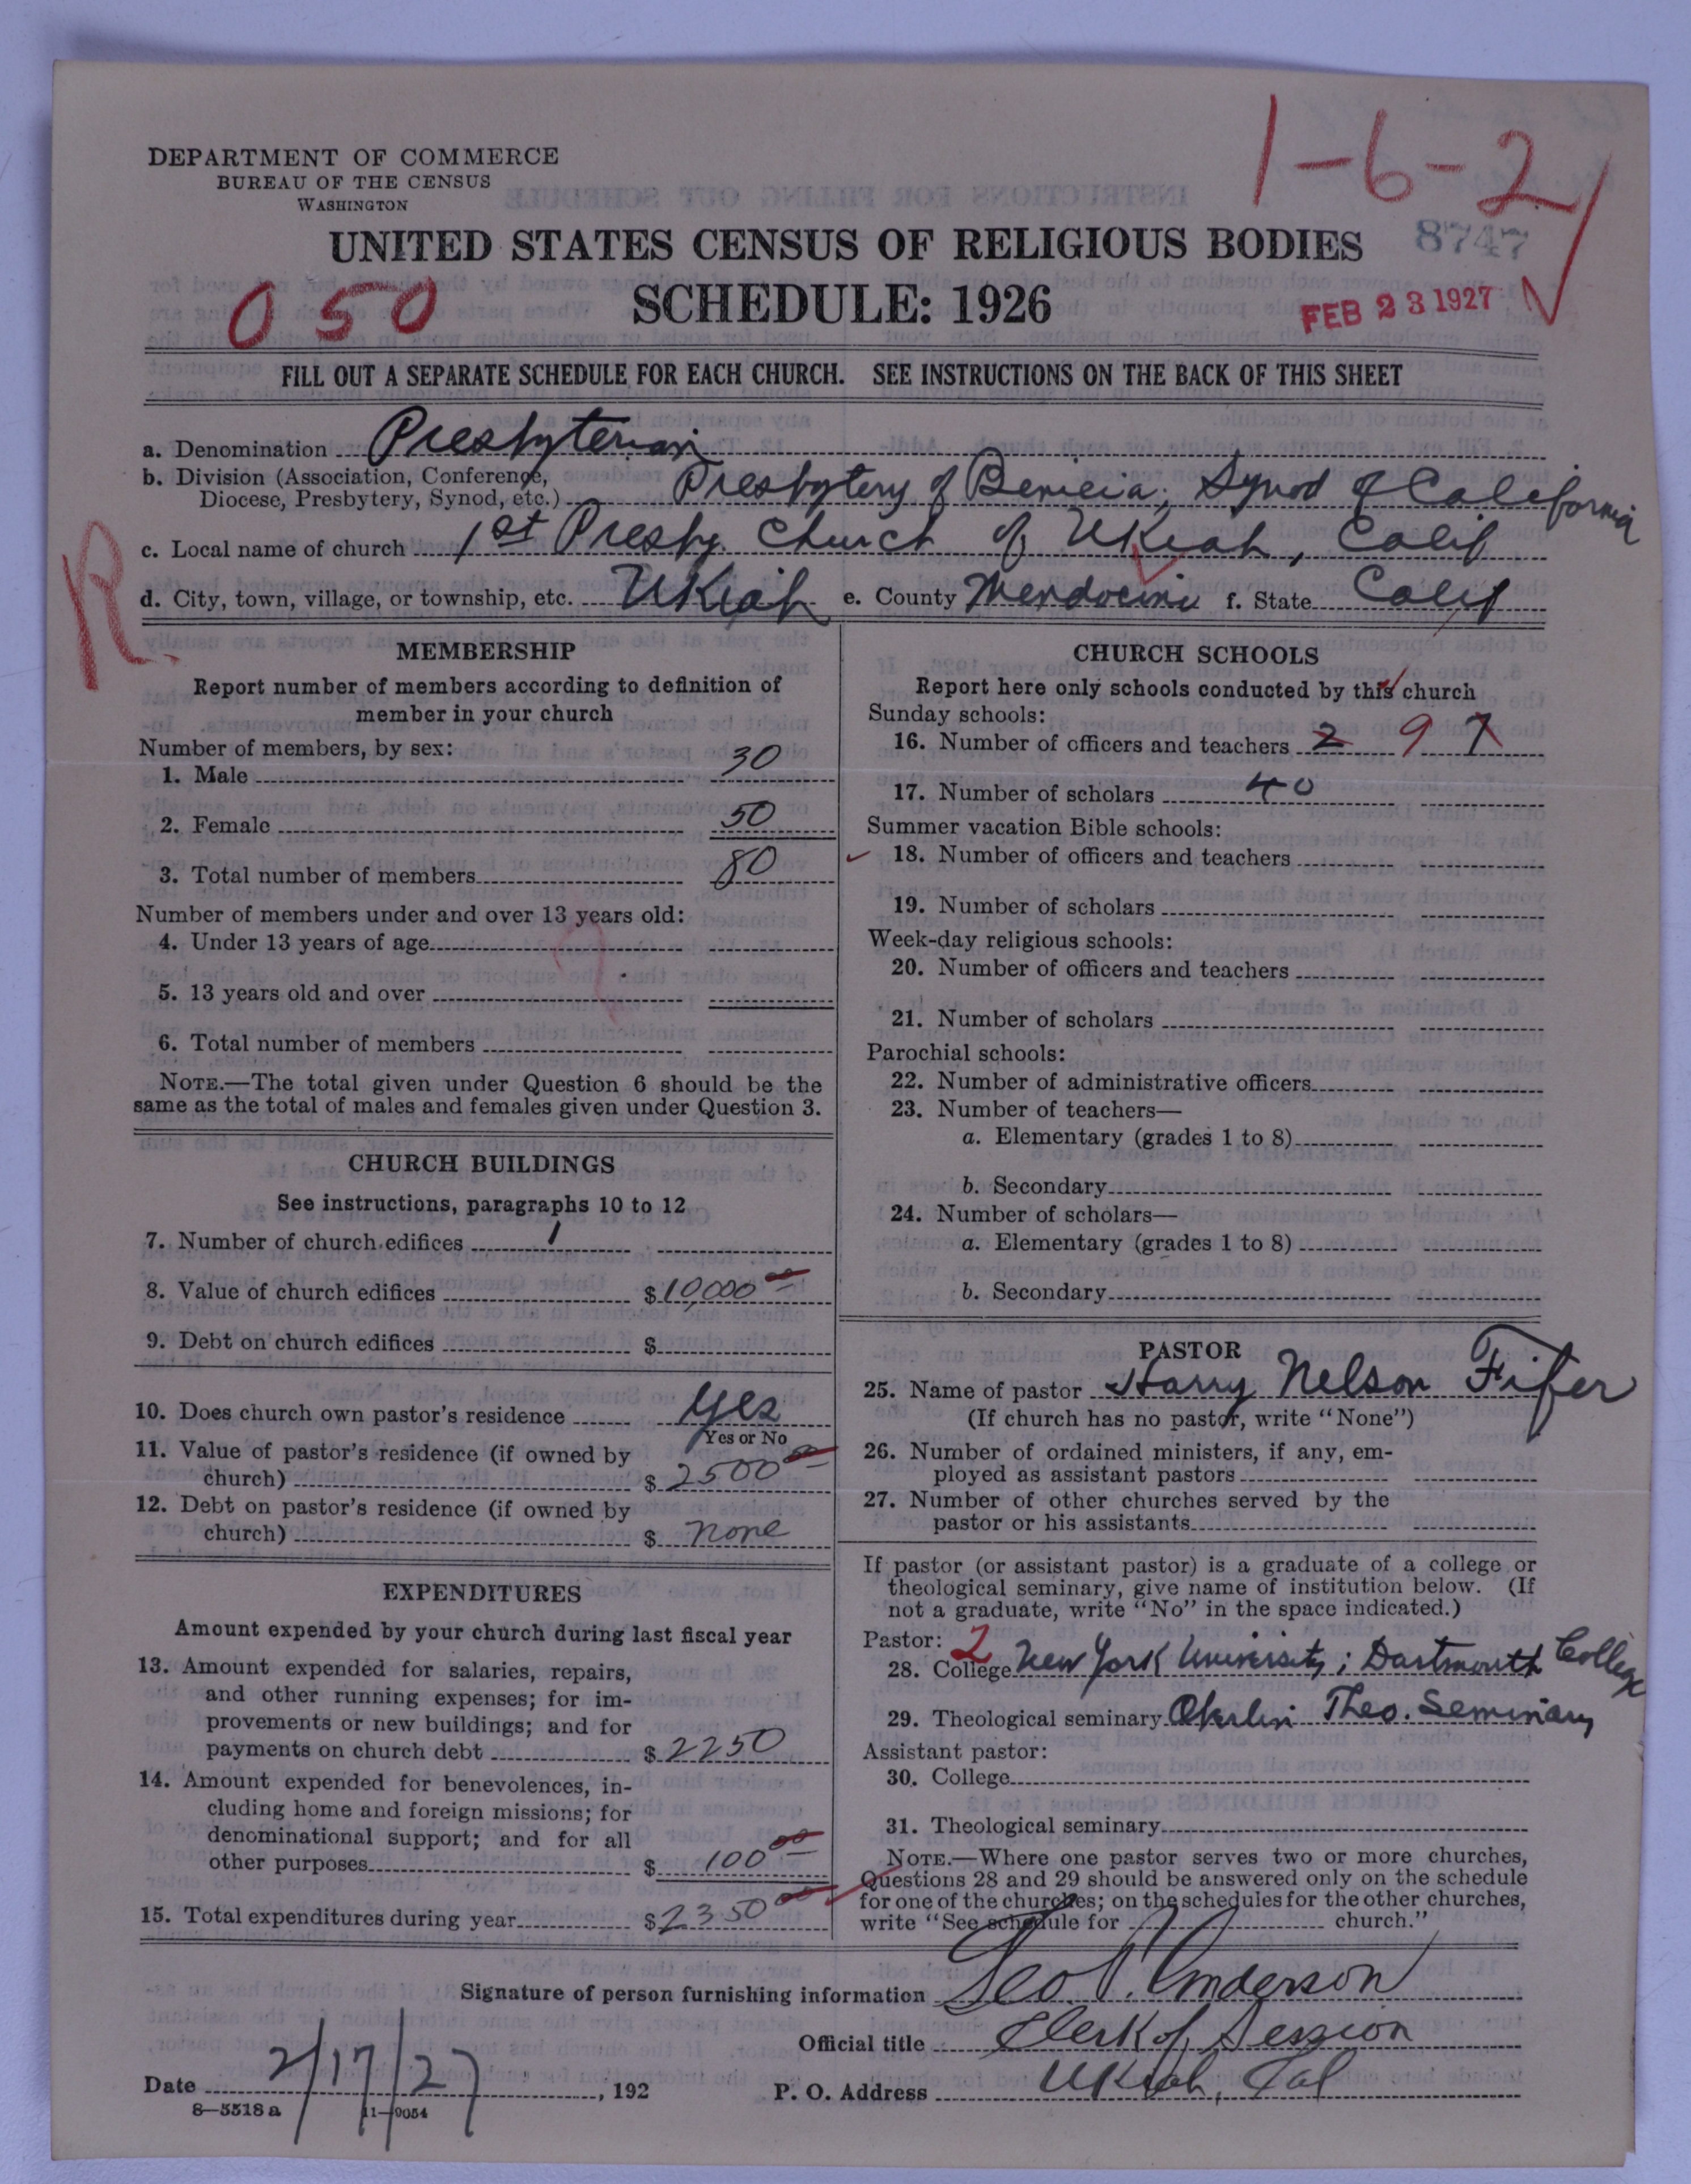 1-6-2
DEPARTMENT OF COMMERCE
BUREAU OF THE CENSUS
WASHINGTON
8747
UNITED STATES CENSUS OF RELIGIOUS BODIES
050
SCHEDULE: 1926
FEB 23 1927
FILL OUT A SEPARATE SCHEDULE FOR EACH CHURCH. SEE INSTRUCTIONS ON THE BACK OF THIS SHEET
a. Denomination Presbyterian
b. Division (Association, Conference,
Diocese, Presbytery, Synod, etc.) Presbytery of Benicia; Synod of California
c. Local name of church 1st Presby. Church of Ukiah, Calif
R.
d. City, town, village, or township, etc. Ukiah e. County Mendocino f. State Calif
MEMBERSHIP
Report number of members according to definition of
member in your church
Number of members, by sex:
1. Male 30
2. Female 50
3. Total number of members 80
Number of members under and over 13 years old:
4. Under 13 years of age
5. 13 years old and over
6. Total number of members
NOTE.—The total given under Question 6 should be the
same as the total of males and females given under Question 3.
CHURCH BUILDINGS
See instructions, paragraphs 10 to 12
7. Number of church edifices 1
8. Value of church edifices $10,000 00
9. Debt on church edifices $
10. Does church own pastor's residence Yes
Yes or No
11. Value of pastor's residence (if owned by
church) $ 2500 00
12. Debt on pastor's residence (if owned by
church) $ none
EXPENDITURES
Amount expended by your church during last fiscal year
13. Amount expended for salaries, repairs,
and other running expenses; for im-
provements or new buildings; and for
payments on church debt $ 2250
14. Amount expended for benevolences, in-
cluding home and foreign missions; for
denominational support; and for all
other purposes $ 100 00
15. Total expenditures during year $2350 00
CHURCH SCHOOLS
Report here only schools conducted by this church
Sunday schools:
16. Number of officers and teachers 2 9 7
17. Number of scholars 40
Summer vacation Bible schools:
18. Number of officers and teachers
19. Number of scholars
Week-day religious schools:
20. Number of officers and teachers
21. Number of scholars
Parochial schools:
22. Number of administrative officers
23. Number of teachers—
a. Elementary (grades 1 to 8)
b. Secondary
24. Number of scholars—
a. Elementary (grades 1 to 8)
b. Secondary
PASTOR
25. Name of pastor Harry Nelson Fifer
(If church has no pastor, write "None")
26. Number of ordained ministers, if any, em-
ployed as assistant pastors
27. Number of other churches served by the
pastor or his assistants
If pastor (or assistant pastor) is a graduate of a college or
theological seminary, give name of institution below. (If
not a graduate, write "No" in the space indicated.)
Pastor: 2
28. College New York University; Dartmouth College
29. Theological seminary Oberlin Theo. Seminary
Assistant pastor:
30. College
31. Theological seminary
NOTE.—Where one pastor serves two or more churches,
Questions 28 and 29 should be answered only on the schedule
for one of the churches; on the schedules for the other churches,
write "See schedule for church."
Signature of person furnishing information Geo. P. Anderson
Official title Clerk of Session
Date 2/17/27, 192
P. O. Address Ukiah, Cal
8—5518 a 11—9054